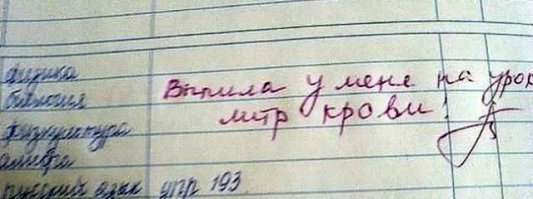 физика
биология Выпила у мене на урок
физкультура литр крови!
алгебра
русский язык упр 193